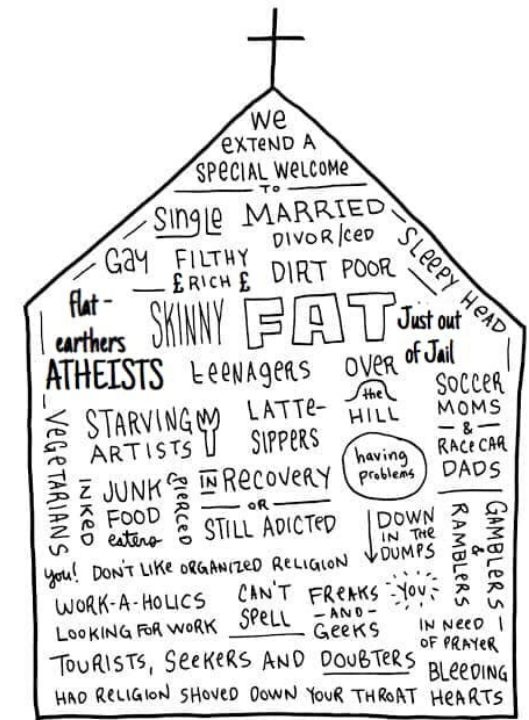 We
EXTEND A
SPECIAL WELCOME
TO
Single MARRIED
DIVOR/CED
Gay FILTHY
£RICH£ DIRT POOR
SLEEPY HEAD
flat-
earthers
SKINNY FAT
Just out
of Jail
ATHEISTS teenagers
OVER
the
HILL
SOCCER
MOMS
&
RACE CAR
DADS
VEGETARIANS
STARVING
ARTISTS
LATTE-
SIPPERS
having
problems
INKED
JUNK
FOOD
eaters
PIERCED
IN RECOVERY
OR
STILL ADICTED
DOWN
IN THE
DUMPS
GAMBLERS
&
RAMBLERS
you! DON'T LIKE ORGANIZED RELIGION
WORK-A-HOLICS
LOOKING FOR WORK
CAN'T
SPELL
FREAKS
-AND-
GEEKS
YOU
IN NEED
OF PRAYER
TOURISTS, SEEKERS AND DOUBTERS
BLEEDING
HEARTS
HAD RELIGION SHOVED DOWN YOUR THROAT